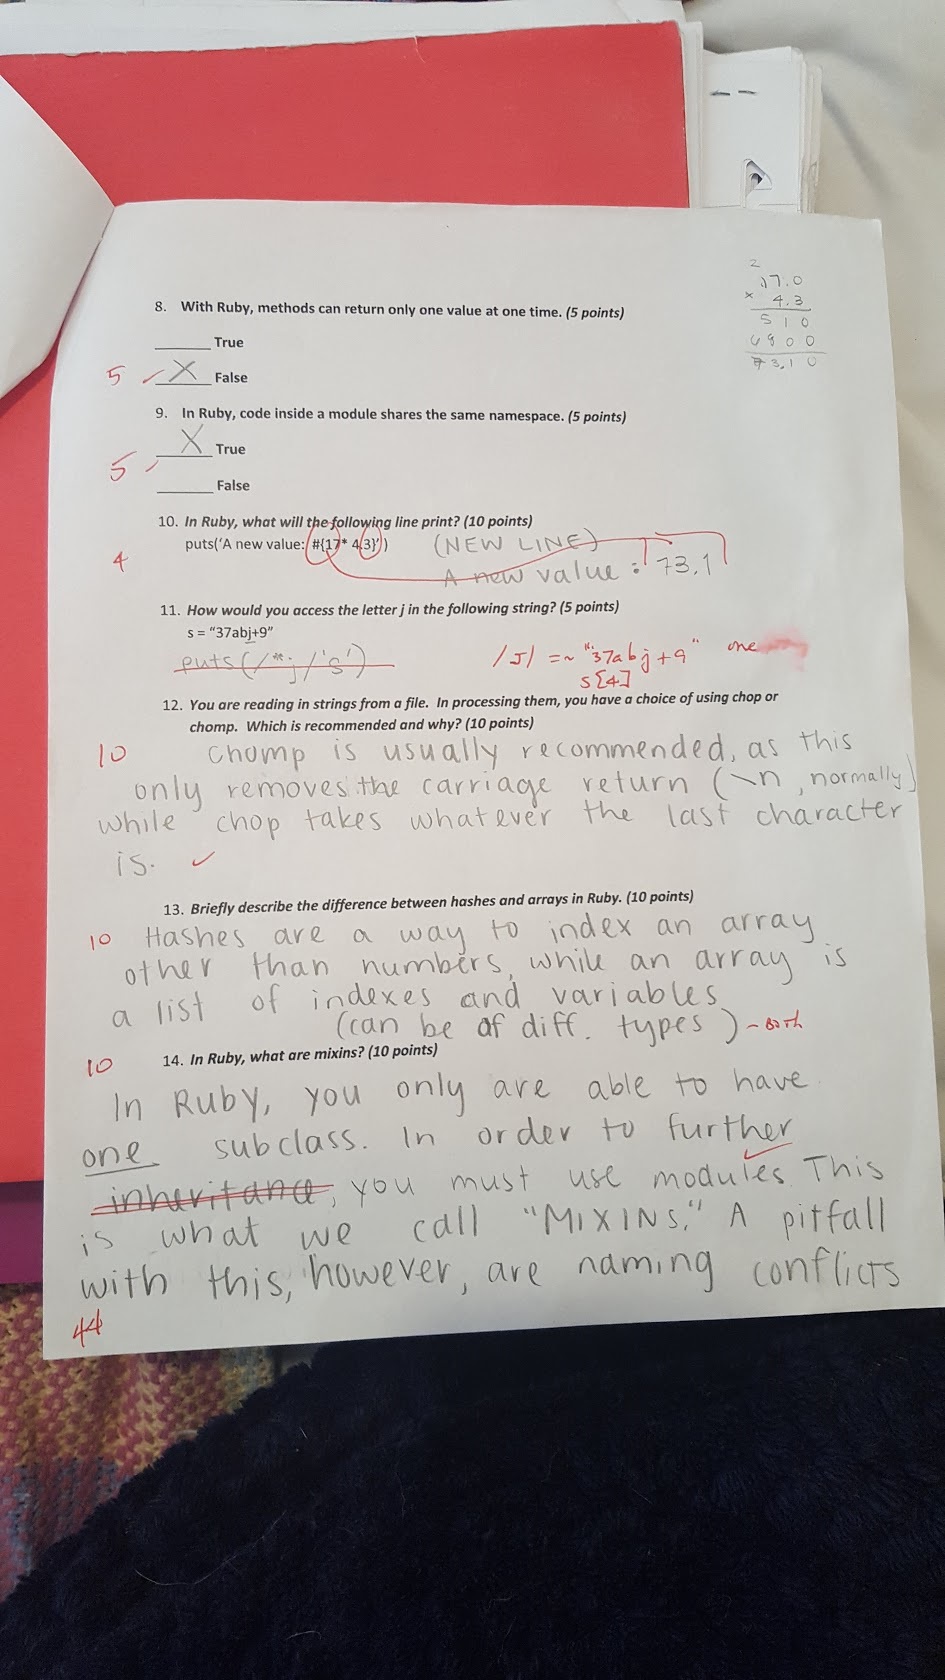 2
17.0
x 4.3
5 1 0
6 8 0 0
7 3.1 0
8. With Ruby, methods can return only one value at one time. (5 points)
______ True
5 ✓ __X__ False
9. In Ruby, code inside a module shares the same namespace. (5 points)
__X__ True
5
______ False
10. In Ruby, what will the following line print? (10 points)
puts('A new value: #{17* 4.3}') (NEW LINE)
4 A new value : 73.1
11. How would you access the letter j in the following string? (5 points)
s = "37abj+9"
puts(/*j/'s') /J/ =~ "37abj+9" one
s[4]
12. You are reading in strings from a file. In processing them, you have a choice of using chop or
chomp. Which is recommended and why? (10 points)
10 chomp is usually recommended, as this
only removes the carriage return (\n, normally)
while chop takes whatever the last character
is. ✓
13. Briefly describe the difference between hashes and arrays in Ruby. (10 points)
10 Hashes are a way to index an array
other than numbers, while an array is
a list of indexes and variables
(can be of diff. types) - Both
10 14. In Ruby, what are mixins? (10 points)
In Ruby, you only are able to have
one subclass. In order to further
inheritance, you must use modules. This
is what we call "MIXINS." A pitfall
with this, however, are naming conflicts
44